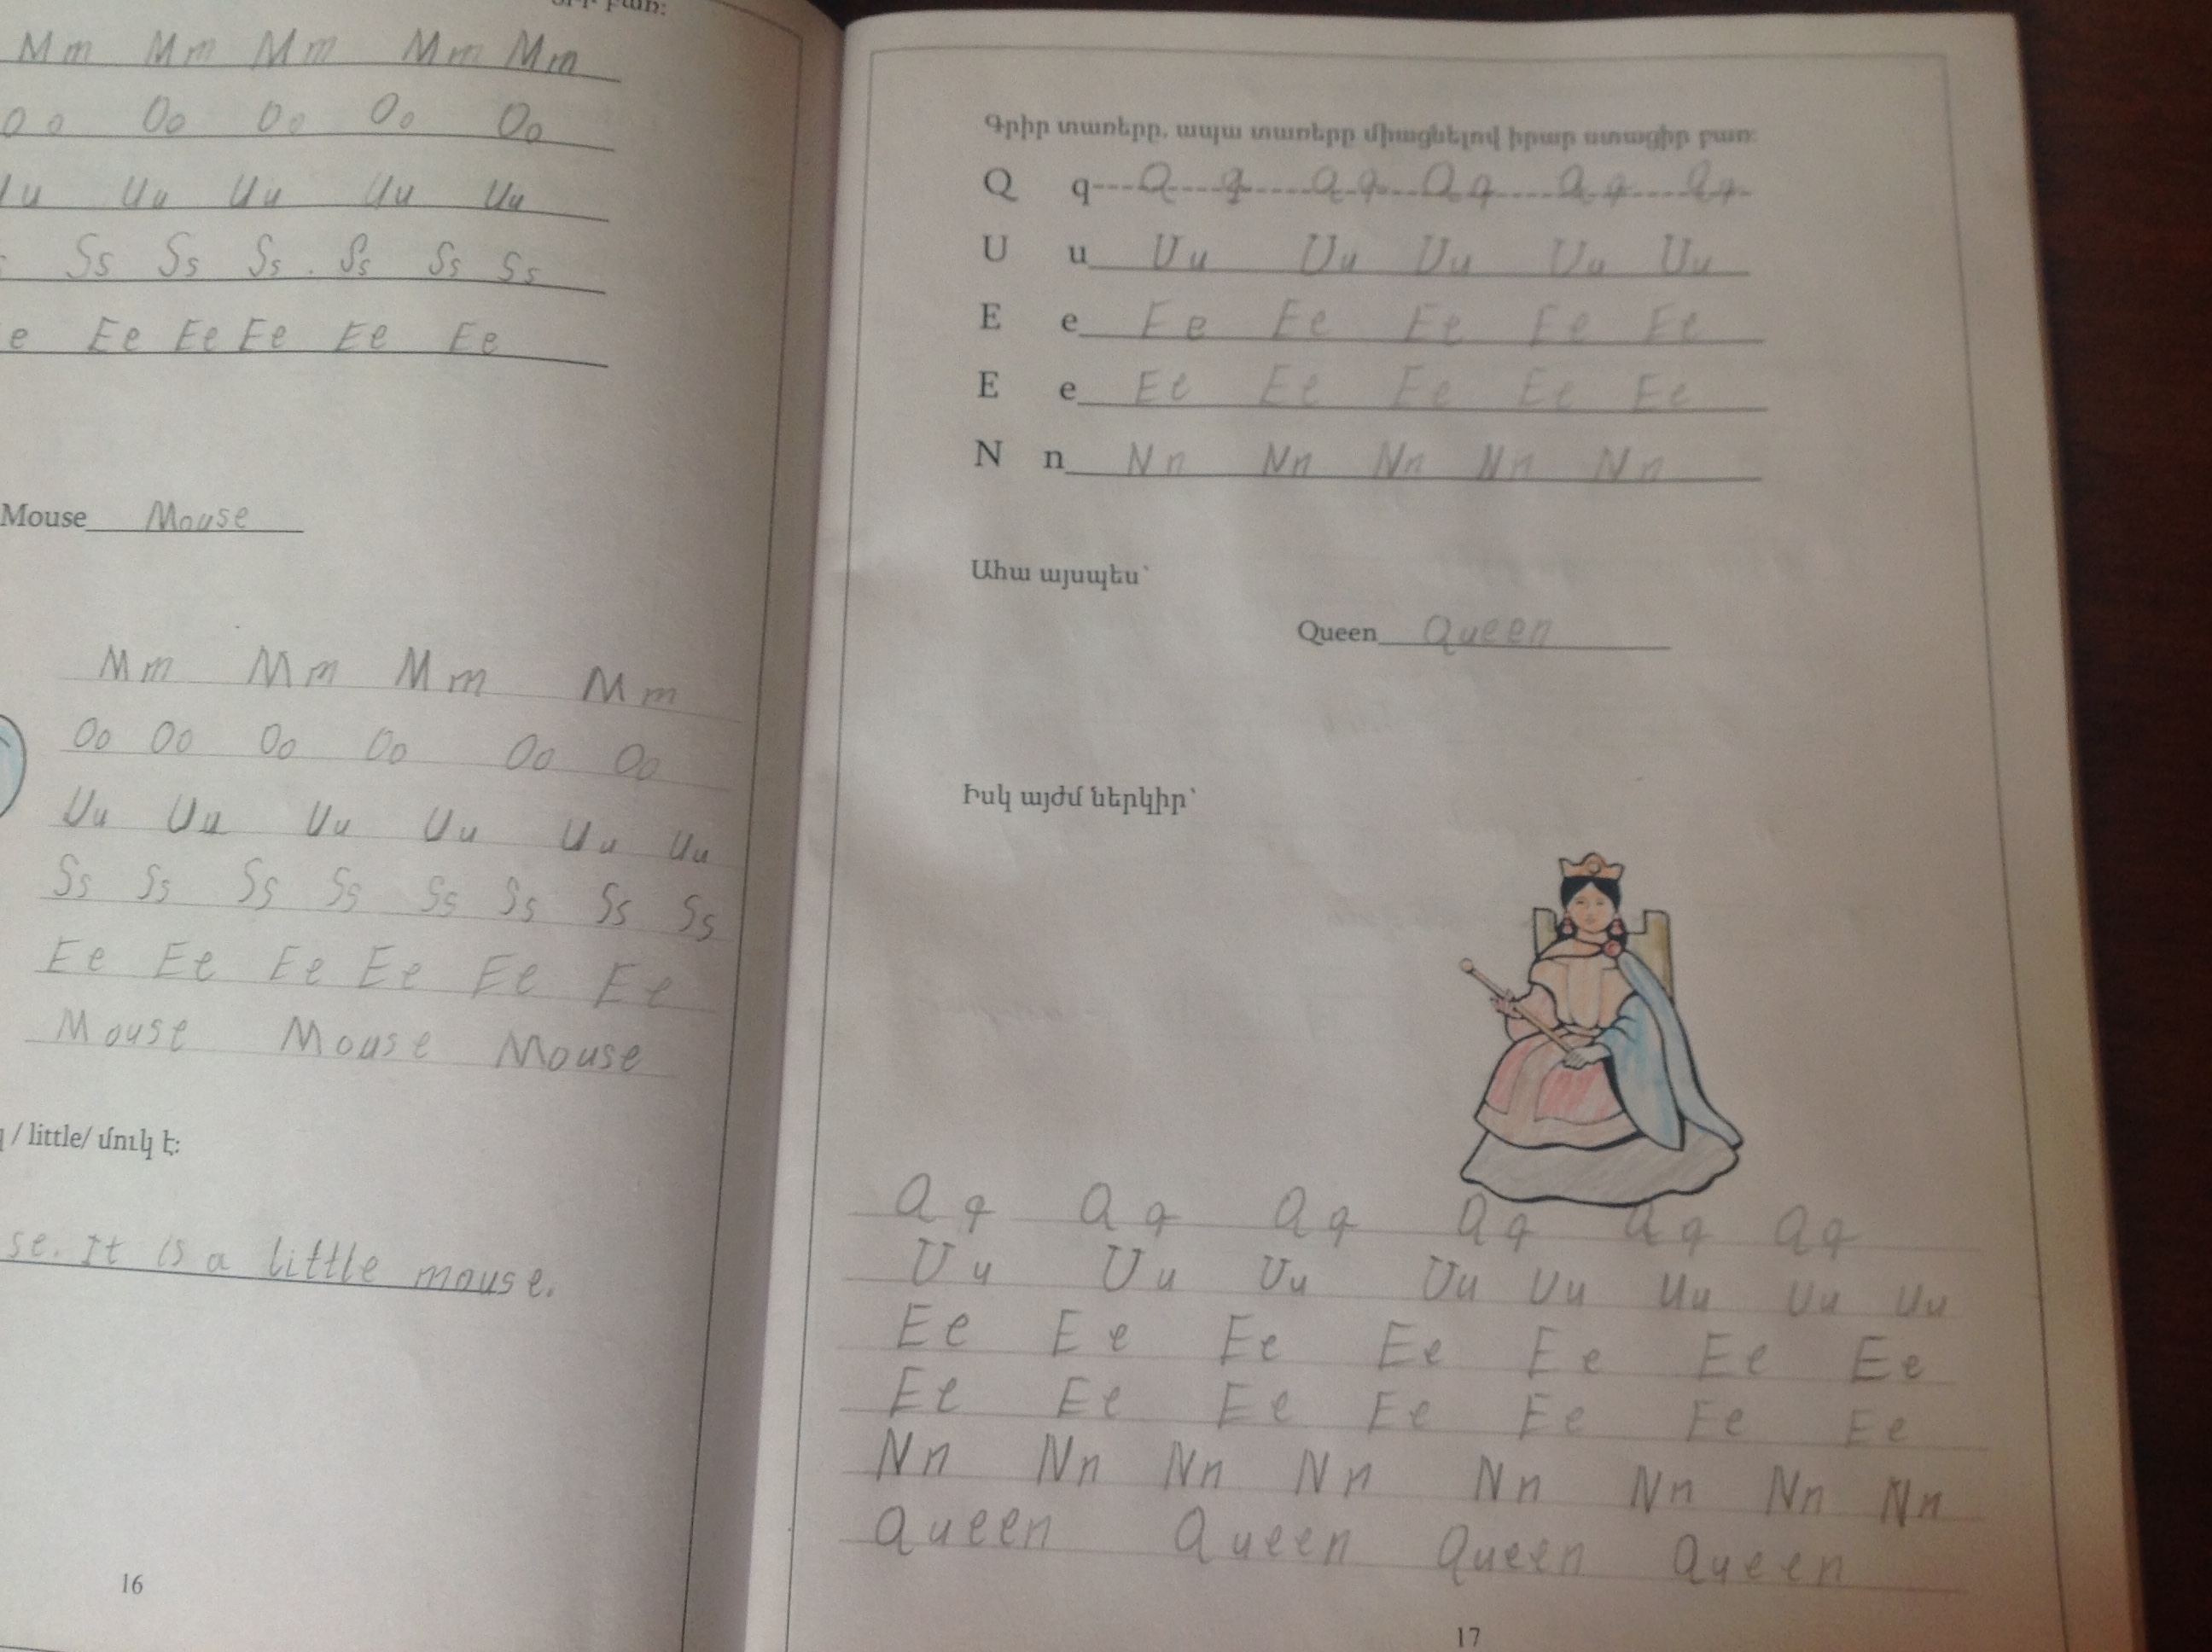 բառ:
Mm Mm Mm Mm Mm
Oo Oo Oo Oo Oo
u Uu Uu Uu Uu
Ss Ss Ss Ss Ss Ss
e Ee Ee Ee Ee Ee
Mouse Mouse
Mm Mm Mm Mm
Oo Oo Oo Oo Oo Oo
Uu Uu Uu Uu Uu Uu
Ss Ss Ss Ss Ss Ss Ss Ss
Ee Ee Ee Ee Ee Ee
Mouse Mouse Mouse
/ little/ մուկ է:
se. It is a little mouse.
16
Գրիր տառերը, ապա տառերը միացնելով իրար ստացիր բառ:
Q q Q q Q q Q q Q q Q q
U u Uu Uu Uu Uu Uu
E e Ee Ee Ee Ee Ee
E e Ee Ee Ee Ee Ee
N n Nn Nn Nn Nn Nn
Ահա այսպես՝
Queen Queen
Իսկ այժմ ներկիր՝
Q q Q q Q q Q q Q q Q q
Uu Uu Uu Uu Uu Uu Uu Uu
Ee Ee Ee Ee Ee Ee Ee
Ee Ee Ee Ee Ee Ee Ee
Nn Nn Nn Nn Nn Nn Nn Nn
Queen Queen Queen Queen
17